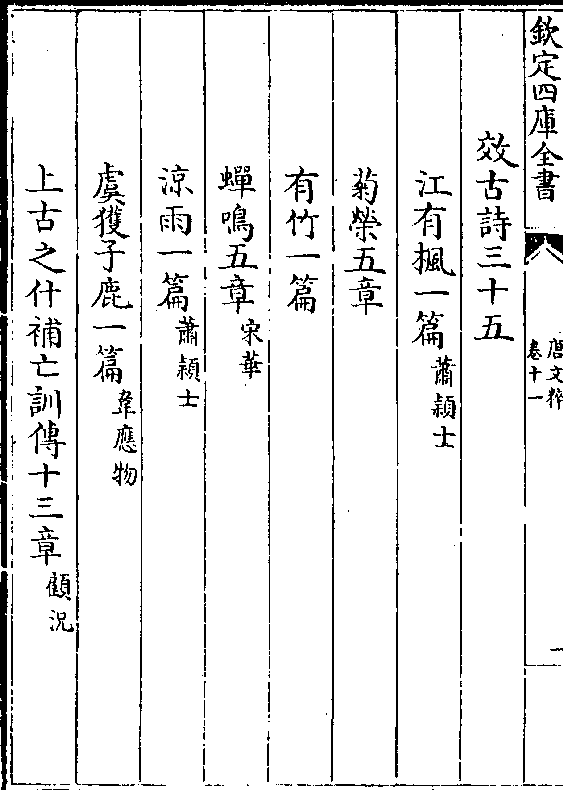 欽定四庫全書
唐文粹
卷十一
一
效古詩三十五
江有楓一篇蕭穎士
菊榮五章
有竹一篇
蟬鳴五章宋華
涼雨一篇蕭穎士
虞獲子鹿一篇韋應物
上古之什補亡訓傳十三章顧況